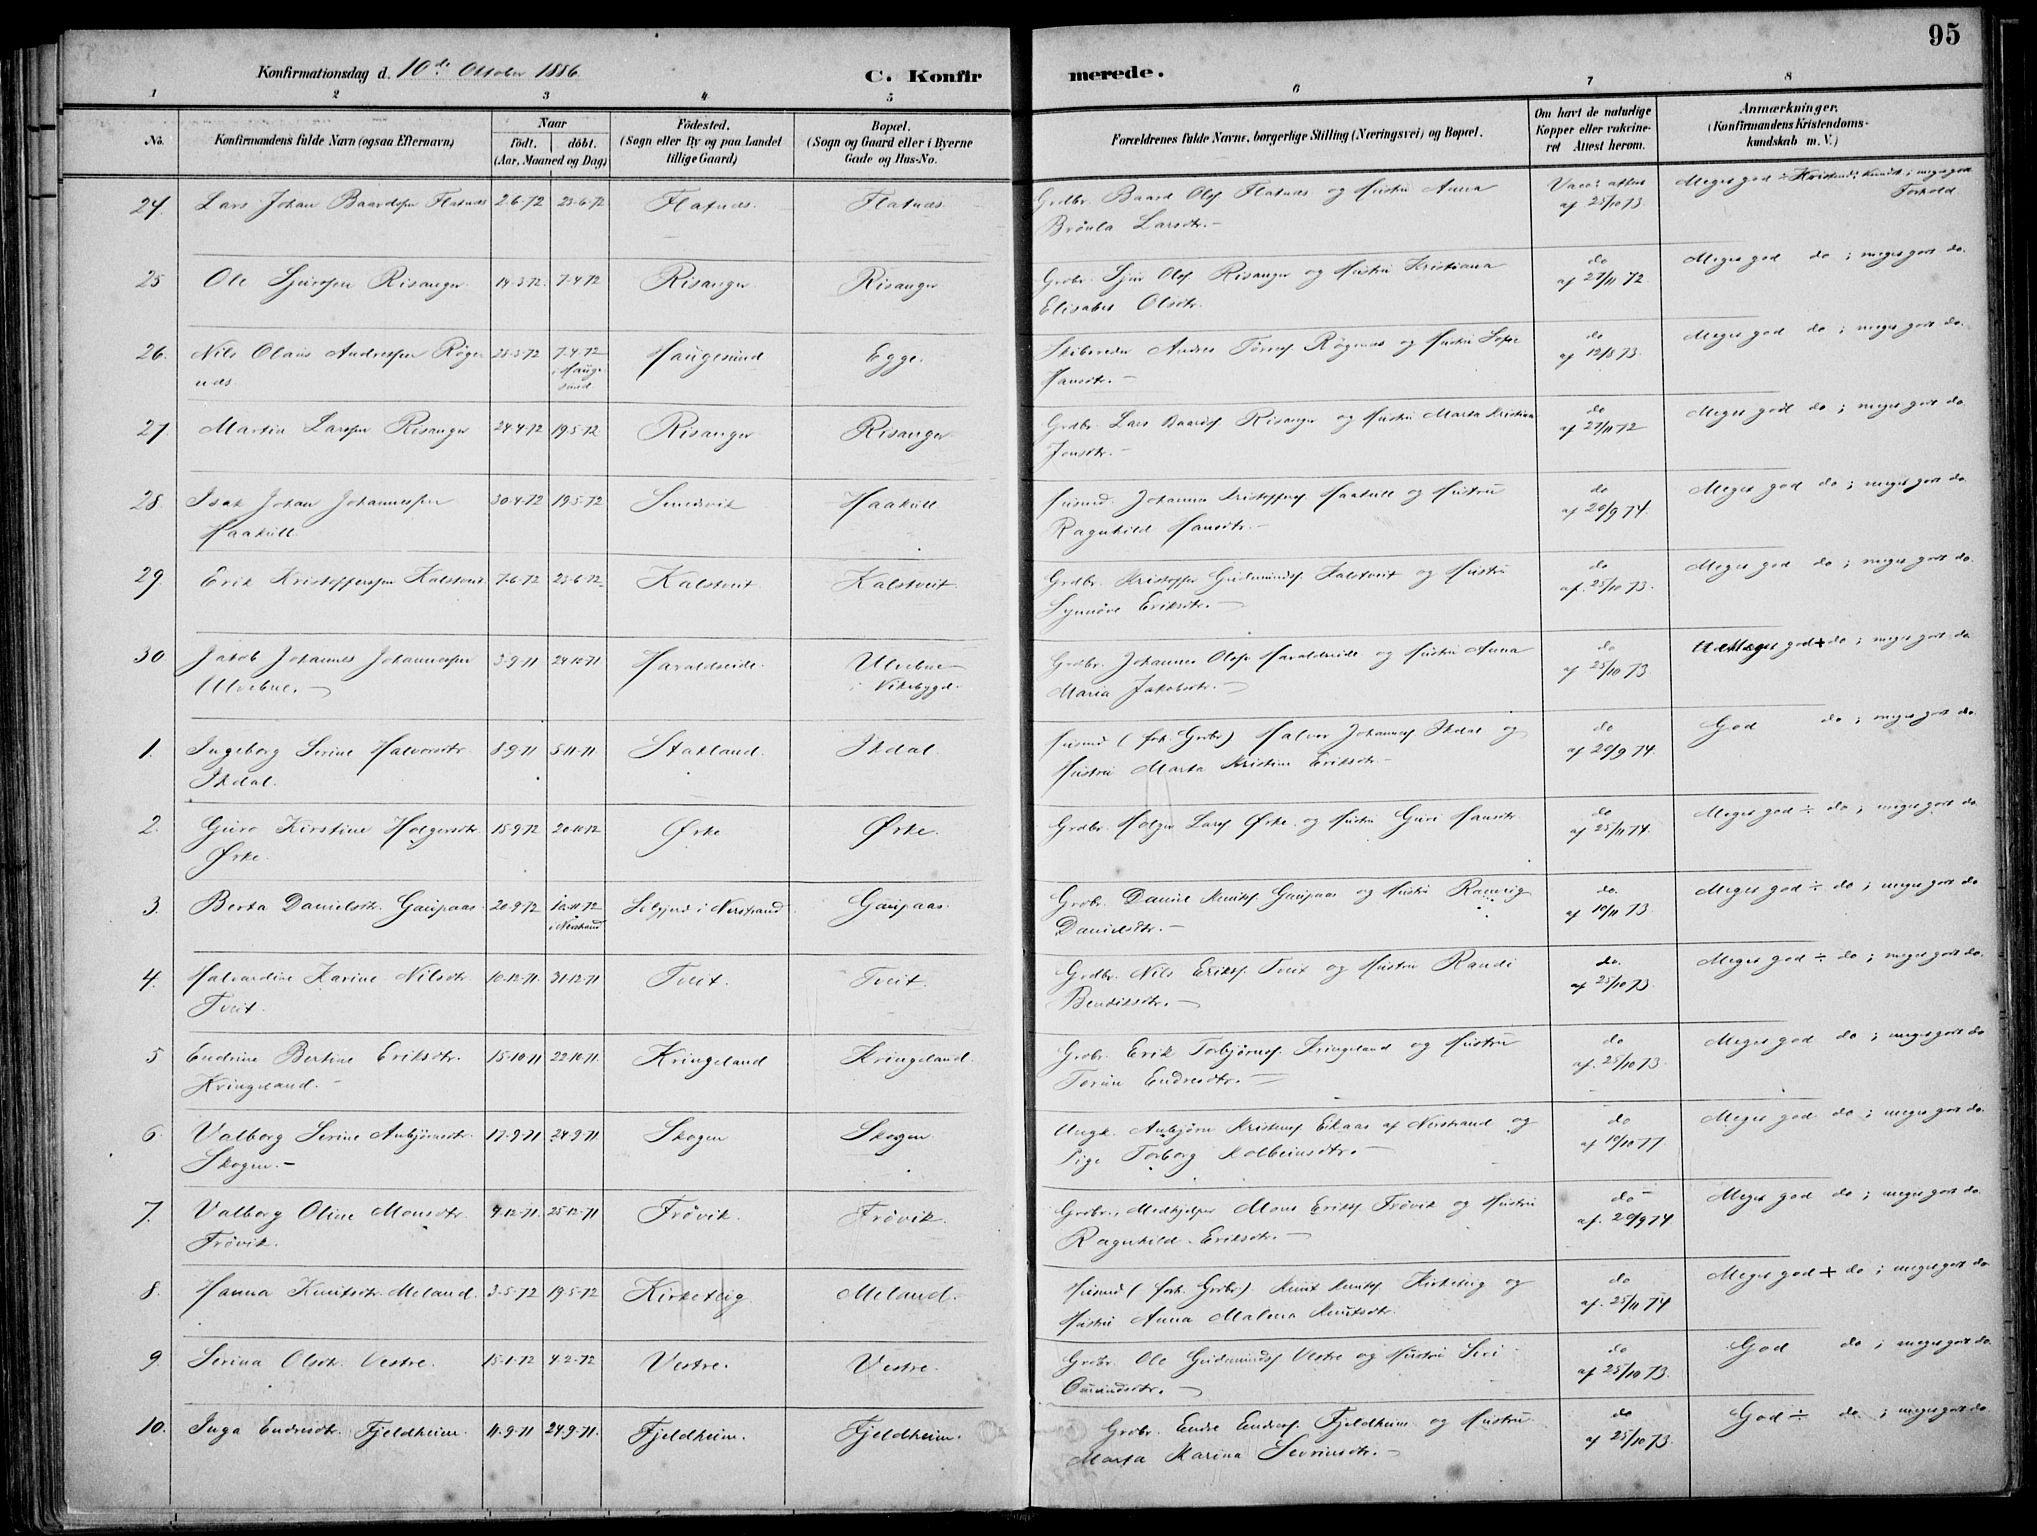 95
Konfirmationsdag d. 10de Oktober 1886.
C. Konfir
merede.
1 2 3 4 5 6 7 8
No. Konfirmandens fulde Navn (ogsaa Efternavn) Naar Fødested. Bopæl. Forældrenes fulde Navne, borgerlige Stilling (Næringsvei) og Bopæl. Om havt de naturlige Anmærkninger,
født. døbt. (Sogn eller By og paa Landet (Sogn og Gaard eller i Byerne Kopper eller vakcine- (Konfirmandens Kristendoms-
(Aar, Maaned og Dag) tillige Gaard) Gade og Hus-No. ret Attest herom. kundskab m. V.)
24. Lars Johan Baardsen Flatnes 2-6-72 23-6-72 Flatnes. Flatnes. Grdbr. Baard Ols. Flatnes og Hustru Anna Vacc. attest Meget god ÷ Kristend. kundsk; meget godt
Brønla Larsdtr. af 25/10 73. Forhold.
25 Ole Sjursen Risanger 14-3-72. 7-4-72 Risanger Risanger Grdbr. Sjur Ols. Risanger og Hustru Kristiana do Meget god do; meget godt do.
Elisabet Olsdtr. af 27/11 72.
26. Nils Olaus Andreassen Røge 7-4-72 Haugesund Egge. Skibsreder og Hustru do Meget god do; meget godt do.
nes. i Hauge Hansdtr. af 73.
sund
27 Martin Larssen Risanger 24-4-72 19-5-72 Risanger Risanger Grdbr. Lars Baards. Risanger og Hustru Marta Kristina do Meget godt do; meget godt do.
Jonsdtr. af 27/11 72
28 Isak Johan Johannessen 30-4-72 19-5-72 Smedsvik Haakull Husmd. Johannes Kristoffers. Haakull og Hustru do Meget god do; meget godt do.
Haakull Ragnhild Hansdtr. af 20/9 74.
29 Erik Kristoffersen Kalstveit 7-6-72 23-6-72 Kalstveit Kalstveit. Grdbr. Kristoffer Gudmunds. Kalstveit og Hustru do Meget god do; meget godt do.
Synnøve Eriksdtr. af. 25/10 73.
30 Jakob Johannes Johannessen 3-9-71 24-10-71 Haraldseide. Ulvebne Grdbr. Johannes Ols. Haraldseide og Hustru Anna do Meget god + do; meget godt do
Ulvebne. i Vikebygd. Maria Jakobsdtr. af 25/10 73
1. Ingeborg Serine Halvorsdtr. 8-9-71 5-11-71 Stakland. Ikdal. Husmd (forh. Grdbr.) Halvor Johannes. Ikdal og do God do; meget godt do.
Ikdal. Hustru Marta Kristine Eriksdtr. af 20/9 74.
2. Guro Kirstine Holgersdtr. 15-9-72 20-10-72 Ørke Ørke. Grdbr. Holger Lars. Ørke og Hustru Guri Hansdtr. do Meget god ÷ do; meget godt do
Ørke. af 25/11 74.
3. Berta Danielsdtr. Gaupaas. 20-9-72 i Nerstrand Gaupaas. Grdbr. Daniel Knuts. Gaupaas og Hustru do. Meget god ÷ do; meget godt do
i Nerstrand Danielsdtr. af 10/11 73.
4. Halvardine Karine Nilsdtr 10-12-71 31-12-71 Tveit. Tveit. Grdbr. Nils Eriks. Tveit og Hustru Randi do. Meget god ÷ do; meget godt do.
Tveit. Bendiksdtr. af 25/10 73.
5 Endrine Bertine Eriksdtr. 15-10-71 22-10-71. Kringeland Kringeland. Grdbr. Erik Torbjørns. Kringeland og Hustru do Meget god do; meget godt do
Kringeland. Torun Endresdtr. af. 25/10 73.
6. Valborg Serine Anbjørnsdtr. 17-9-71 24-9-71 Skogen Skogen Ungk. Anbjørn Kristens. Eikaas af Nerstrand og do Meget god do; meget godt do.
Skogen. Pige Torborg Kolbeinsdtr. af 10/10 77.
7. Valborg Oline Monsdtr. 4-12-71. 25-12-71 Frøvik. Frøvik. Grdbr., Medhjelper Mons Eriks. Frøvik og Hustru do Meget god do; meget godt do.
Frøvik. Ragnhild Eriksdtr. af. 20/9 74
8. Hanna Knutsdtr. Meland. 3-5-72 19-5-72 Kirketeig Meland. Husmd (forh. Grdbr.) Knut Knuts. Kirketeig og do Meget god + do; meget godt do
Hustru Anna Malena Knutsdtr. af. 25/11 74
9. Serina Olsdtr. Vestre. 15-1-72 4-2-72 Vestre. Vestre. Grdbr. Ole Gudmunds. Vestre og Hustru Siri do God do; meget godt do.
Omundsdtr. af 25/10 73.
10. Inga Endresdtr. Fjeldheim. 11-9-71 24-9-71. Fjeldheim. Fjeldheim. Grdbr. Endre Endres. Fjeldheim og Hustru do God ÷ do; meget godt do.
Marta Marina Sevrinsdtr. af 25/10 73.